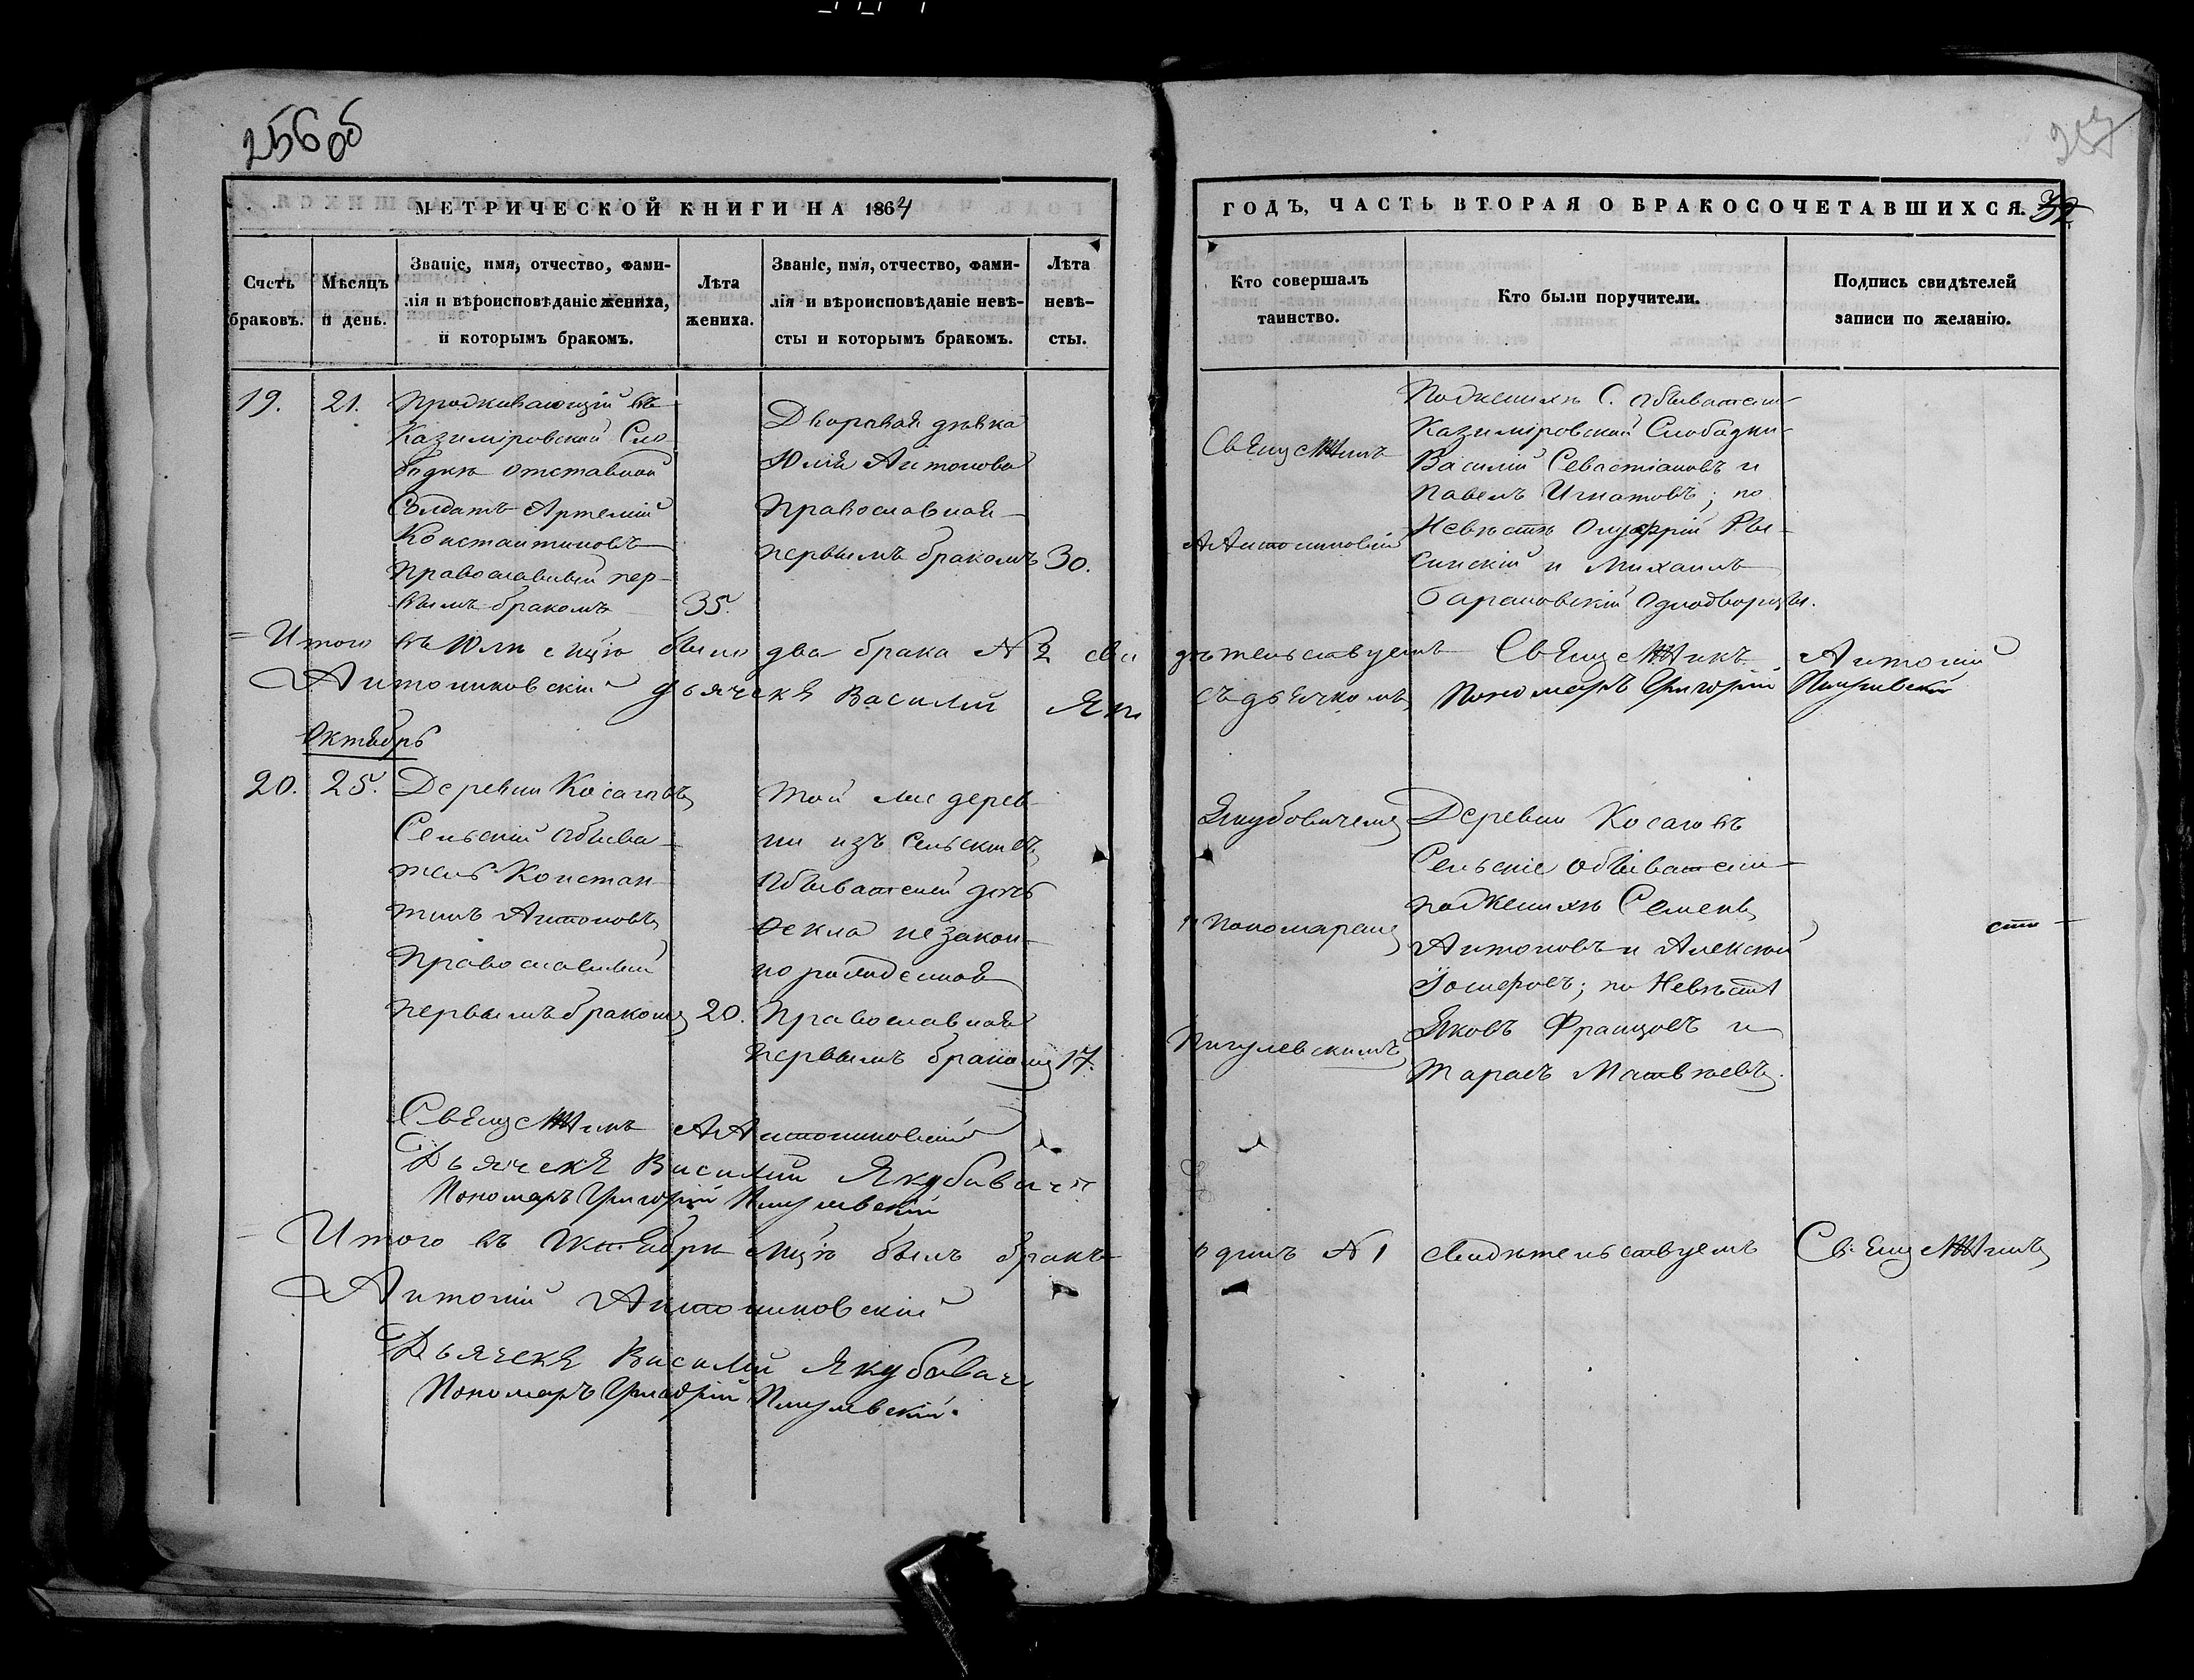 256 об
257
МЕТРИЧЕСКОЙ КНИГИ НА 1864
ГОДЪ, ЧАСТЬ ВТОРАЯ О БРАКОСОЧЕТАВШИХСЯ.
Счетъ браковъ.
Мѣсяцъ и день.
Званіе, имя, отчество, фами-
лія и вѣроисповѣданіе жениха,
и которымъ бракомъ.
Лѣта жениха.
Званіе, имя, отчество, фами-
лія и вѣроисповѣданіе невѣ-
сты и которымъ бракомъ.
Лѣта невѣ-
сты.
Кто совершалъ
таинство.
Кто были поручители.
Подпись свидѣтелей
записи по желанію.
19.
21.
Проживающій въ
Казиміровской Сло
бодкѣ отставной
Солдатъ Артемій
Константиновъ
Православный пер-
вымъ бракомъ
35.
Дворовая дѣвка
Юлія Антонова
Православная
первымъ бракомъ
30.
Священникъ
А Антониновскій
По женихѣ С. обыватели
Казиміровской Слободки
Василій Севастіановъ и
Павелъ Игнатовъ; по
Невѣстѣ Онуфрій Ры-
синскій и Михаилъ
Барановскій однодворцы.
Итого въ Юли мцѣ было два брака № 2 сви
дѣтельствуемъ Священникъ Антоній
Антониновскій Дьячекъ Василій Яку
Пономаръ Григорій Пигулевскій
съ дьячкомъ
Октябрь
20.
25.
Деревни Косаговъ
Сельскій обыва-
тель Констан-
тинъ Антоновъ
Православный
первымъ бракомъ
20.
той же дерев-
ни изъ Сельскихъ
Обывателей дочь
Ѳекла незакон-
но рожденная
Православная
первымъ бракомъ
17.
Якубовичемъ
и пономаремъ
Пигулевскимъ
Деревни Косаговъ
Сельскіе обыватели
по женихѣ Семенъ
Антоновъ и Алексѣй
Іосифовъ; по Невѣстѣ
Яковъ Францовъ и
Тарасъ Матвѣевъ.
Священникъ А Антониновскій
Дьячекъ Василій Якубовичъ
Пономаръ Григорій Пигулевскій
Итого въ Октябри мцѣ былъ бракъ
одинъ № 1 свидѣтельствуемъ Священникъ
Антоній Антониновскій
Дьячекъ Василій Якубович
Пономаръ Григорій Пигулевскій.